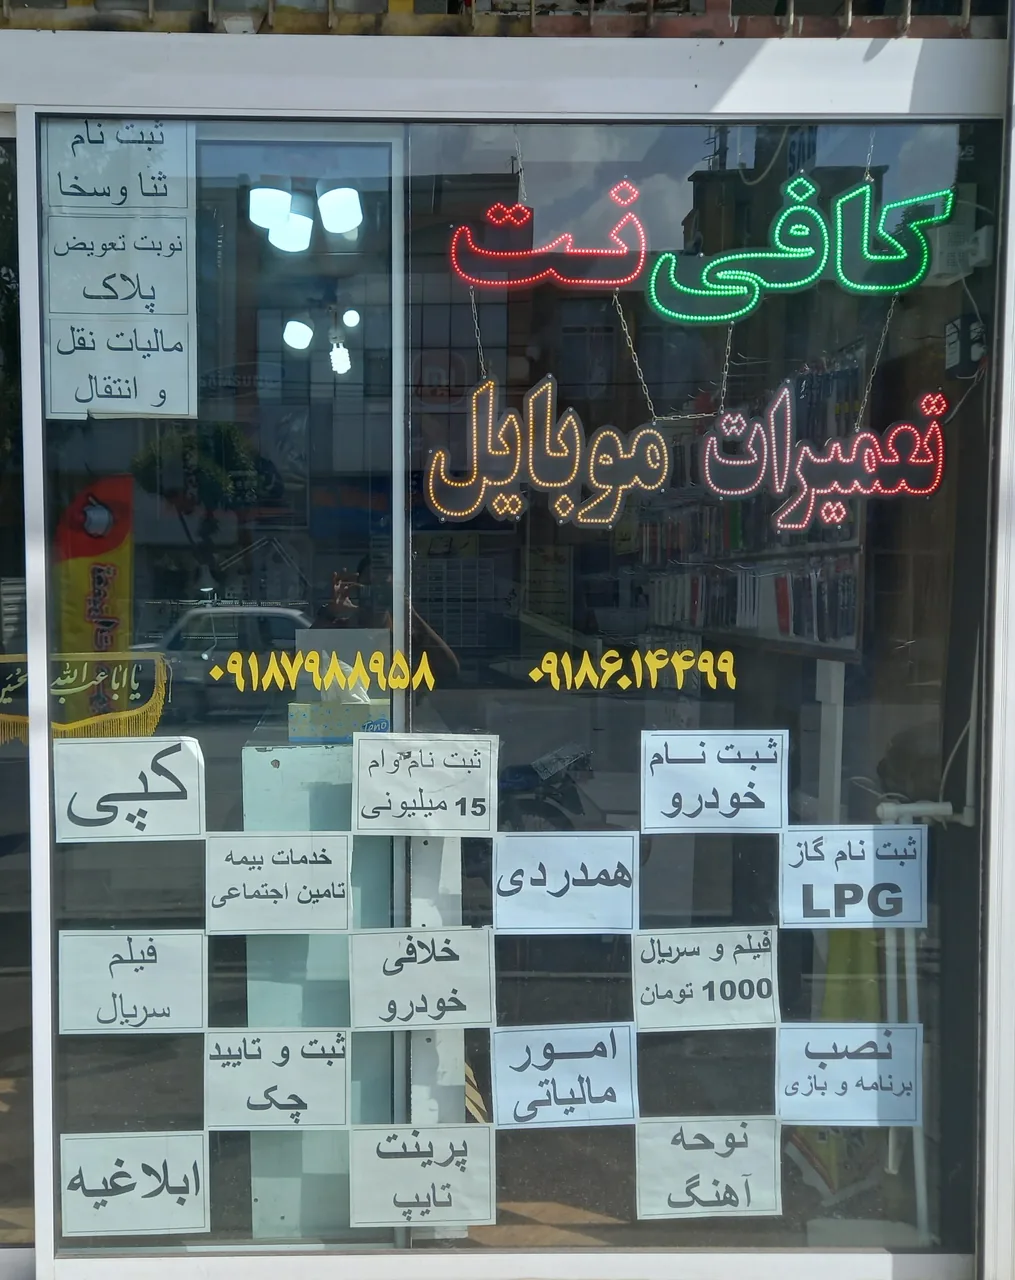 ثبت نام
ثنا وسخا
نوبت تعویض
پلاک
مالیات نقل
و انتقال
کافی نت
تعمیرات موبایل
۰۹۱۸۶۰۱۴۴۹۹
۰۹۱۸۷۹۸۸۹۵۸
یا اباعبدالله الحسین
ثبت نام
خودرو
ثبت نام وام
15 میلیونی
کپی
ثبت نام گاز
LPG
همدردی
خدمات بیمه
تامین اجتماعی
فیلم و سریال
1000 تومان
خلافی
خودرو
فیلم
سریال
نصب
برنامه و بازی
امــور
مالیاتی
ثبت و تایید
چک
نوحه
آهنگ
پرینت
تایپ
ابلاغیه